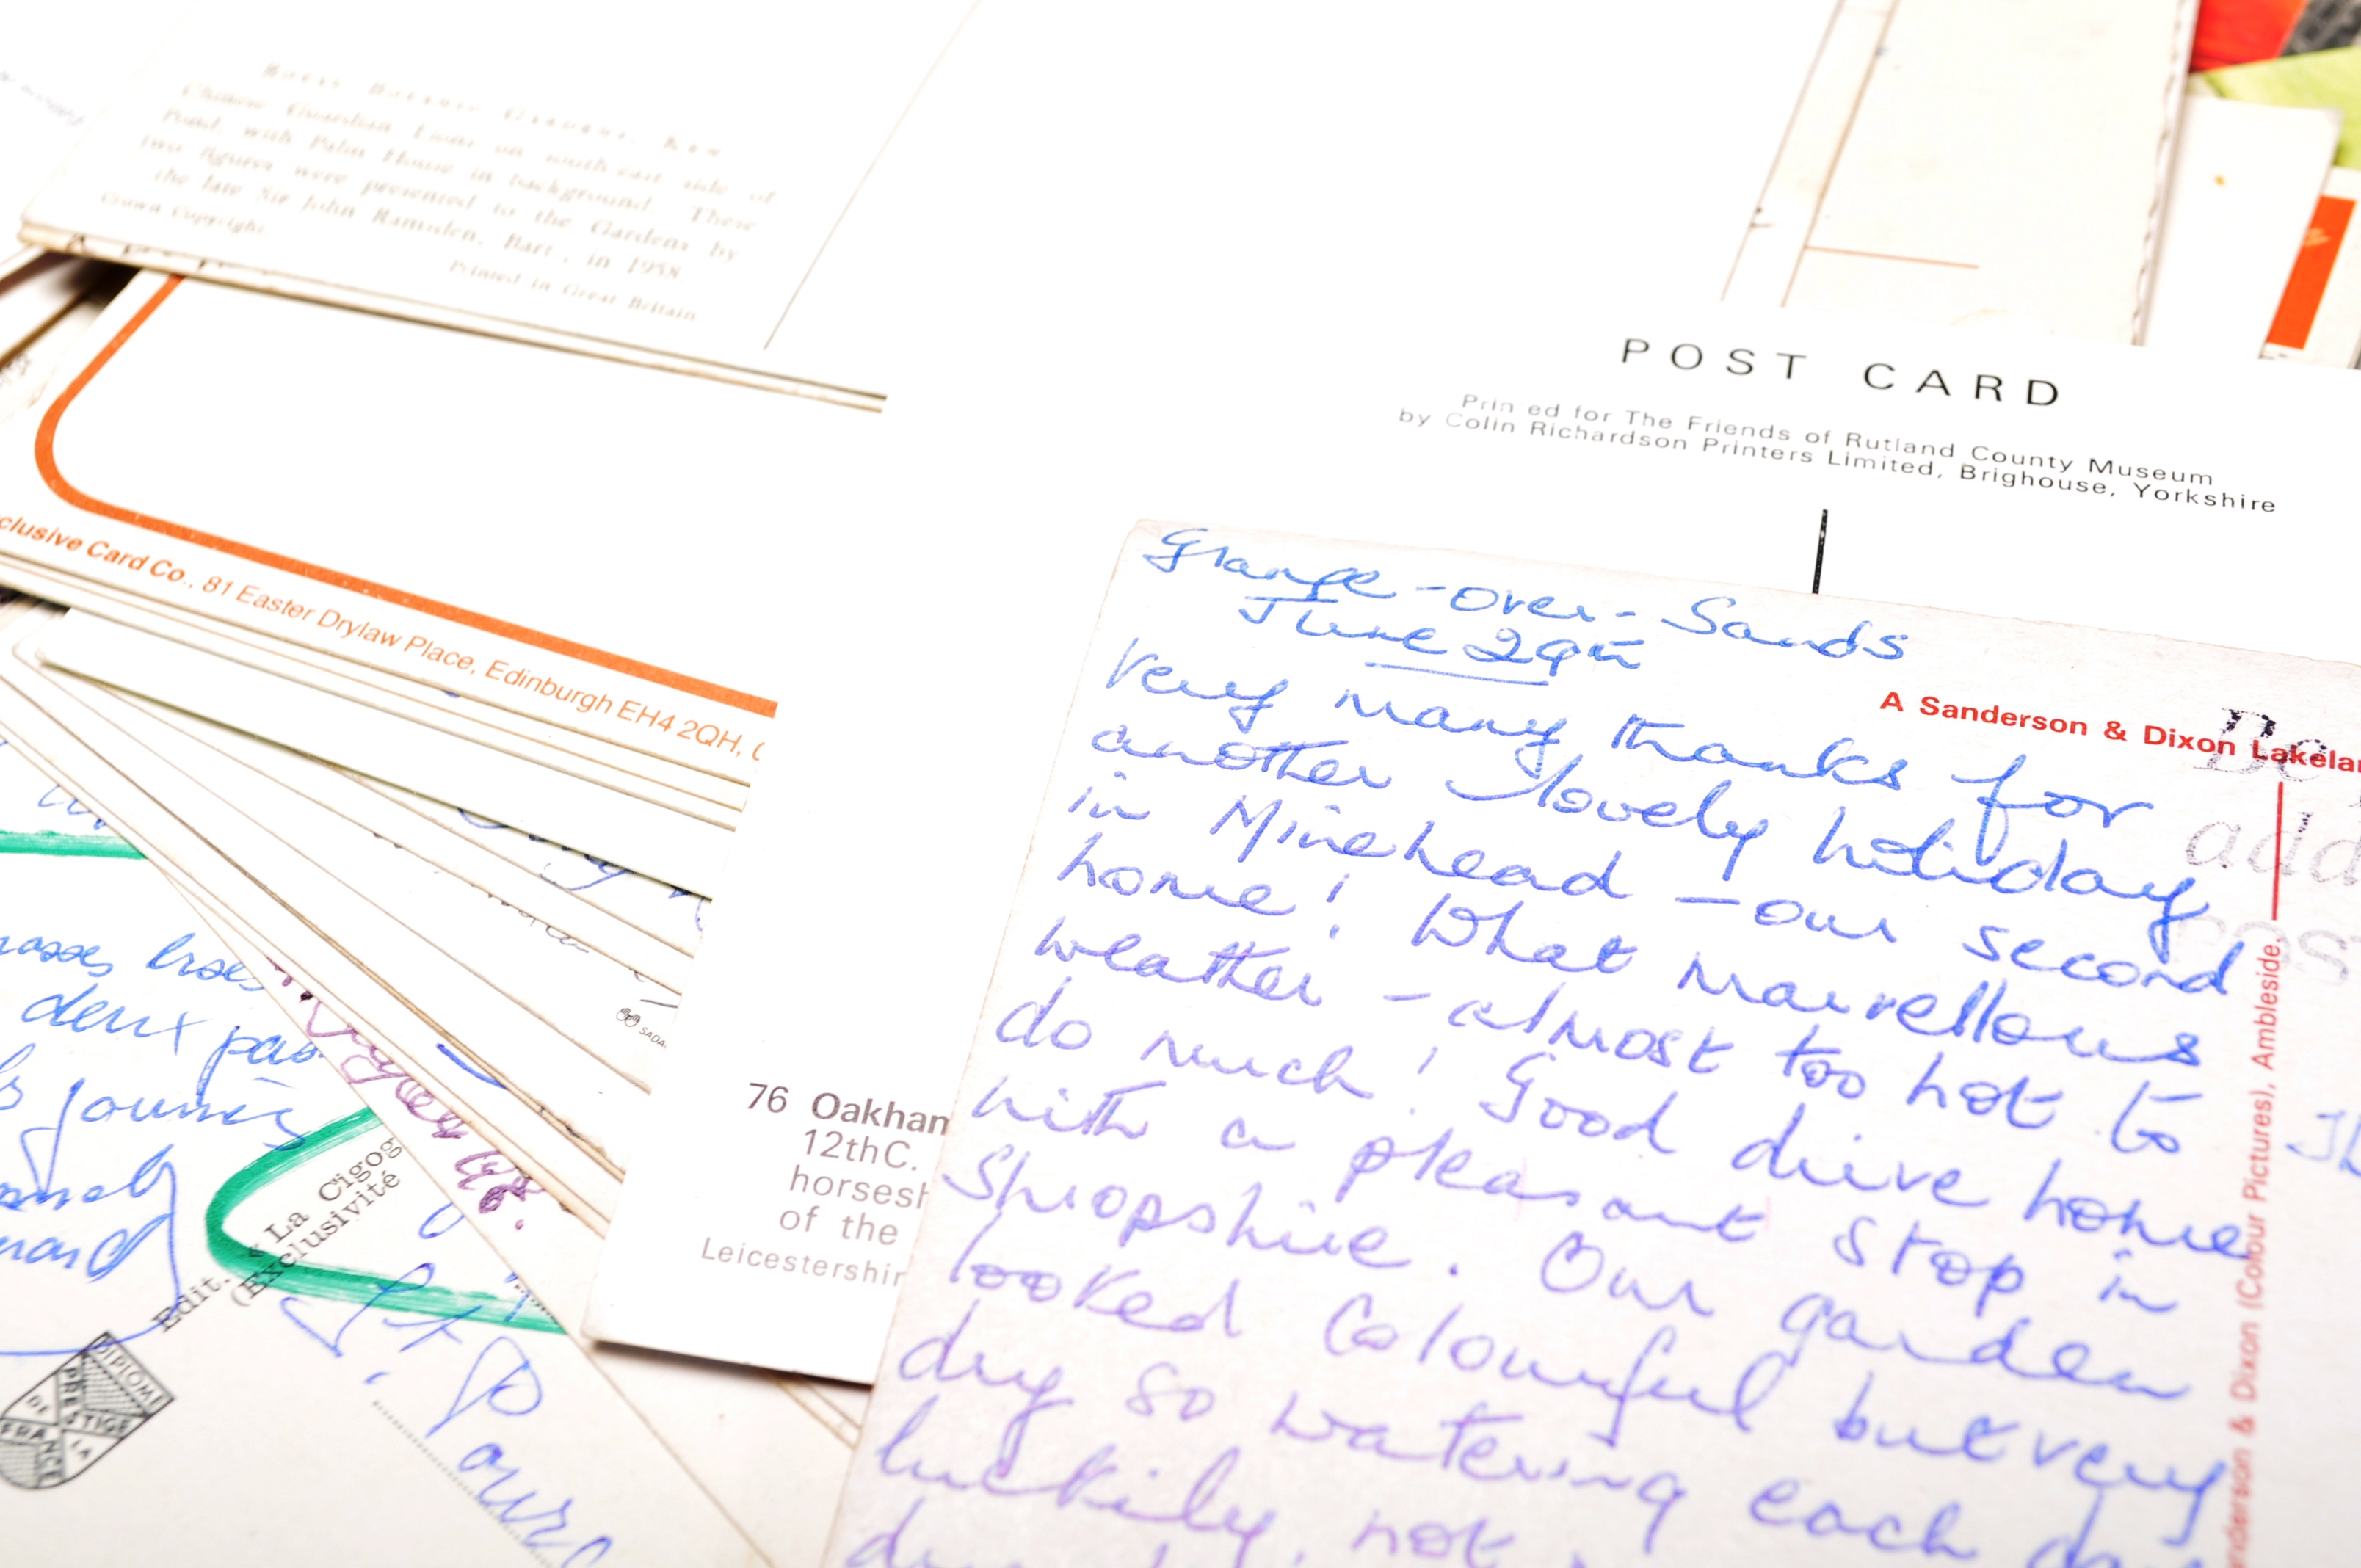 ROYAL BOTANIC GARDENS, KEW
Chinese Guardian Lions on south-east side of
Pond, with Palm House in background. These
two figures were presented to the Gardens by
the late Sir John Ramsden, Bart., in 1958
Crown Copyright.
Printed in Great Britain
clusive Card Co., 81 Easter Drylaw Place, Edinburgh EH4 2QH,
POST CARD
Prin ed for The Friends of Rutland County Museum
by Colin Richardson Printers Limited, Brighouse, Yorkshire
76 Oakham
12thC.
horsesh
of the
Leicestershir
Grange-over-Sands
June 29th
Very many thanks for
another lovely holiday
in Minehead - our second
home! What marvellous
weather - almost too hot to
do much! Good drive home
with a pleasant stop in
Shropshire. Our garden
looked colourful but very
dry so watering each
luckily, not
A Sanderson & Dixon Lakelan
nderson & Dixon (Colour Pictures), Ambleside.
Be
add
SADA
deux pas
Edit. « La Cigog
(Exclusivité
DIPLOME
PRESTIGE
DE LA
FRANCE